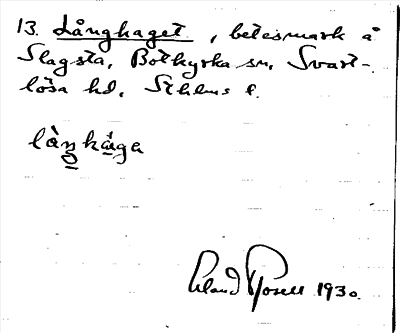 13. Långhaget, betesmark å
Slagsta, Botkyrka sn, Svart-
lösa hd, Sthlms l.
làŋhá̤ga
Erland Rosell 1930.